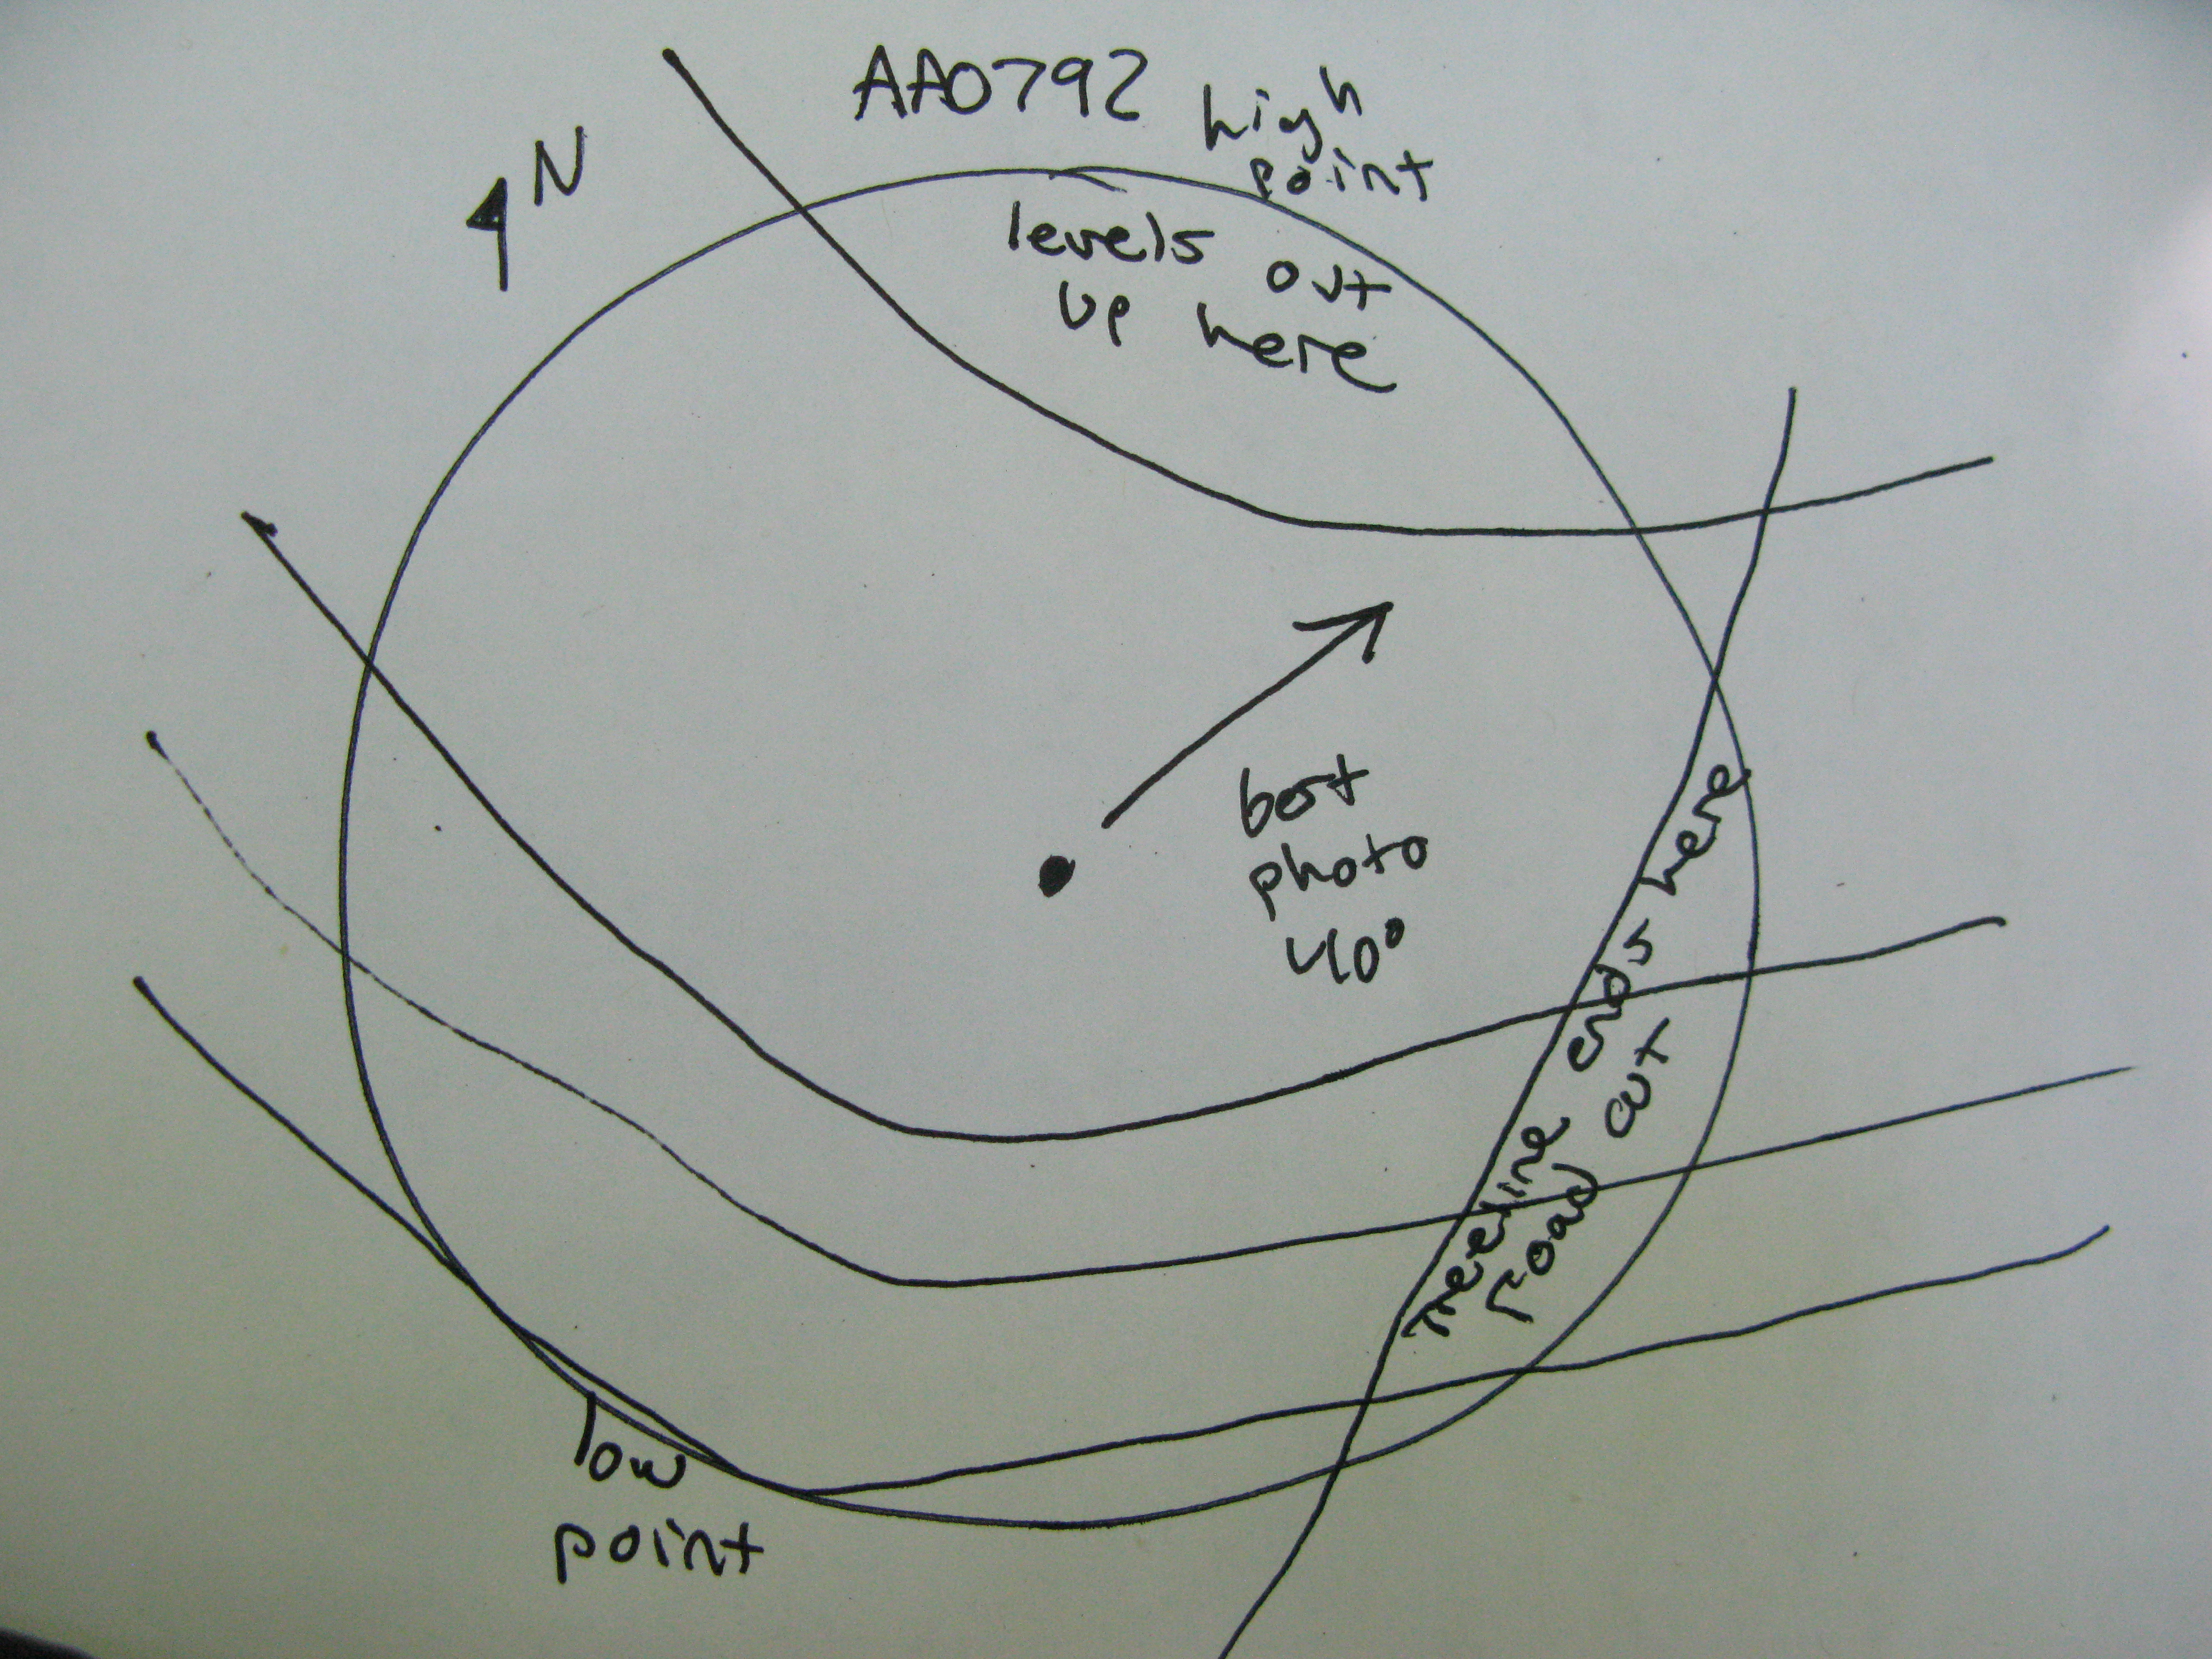 AA0792
N
high
point
levels out
up here
best
photo
40°
treeline ends here
road cut
low
point